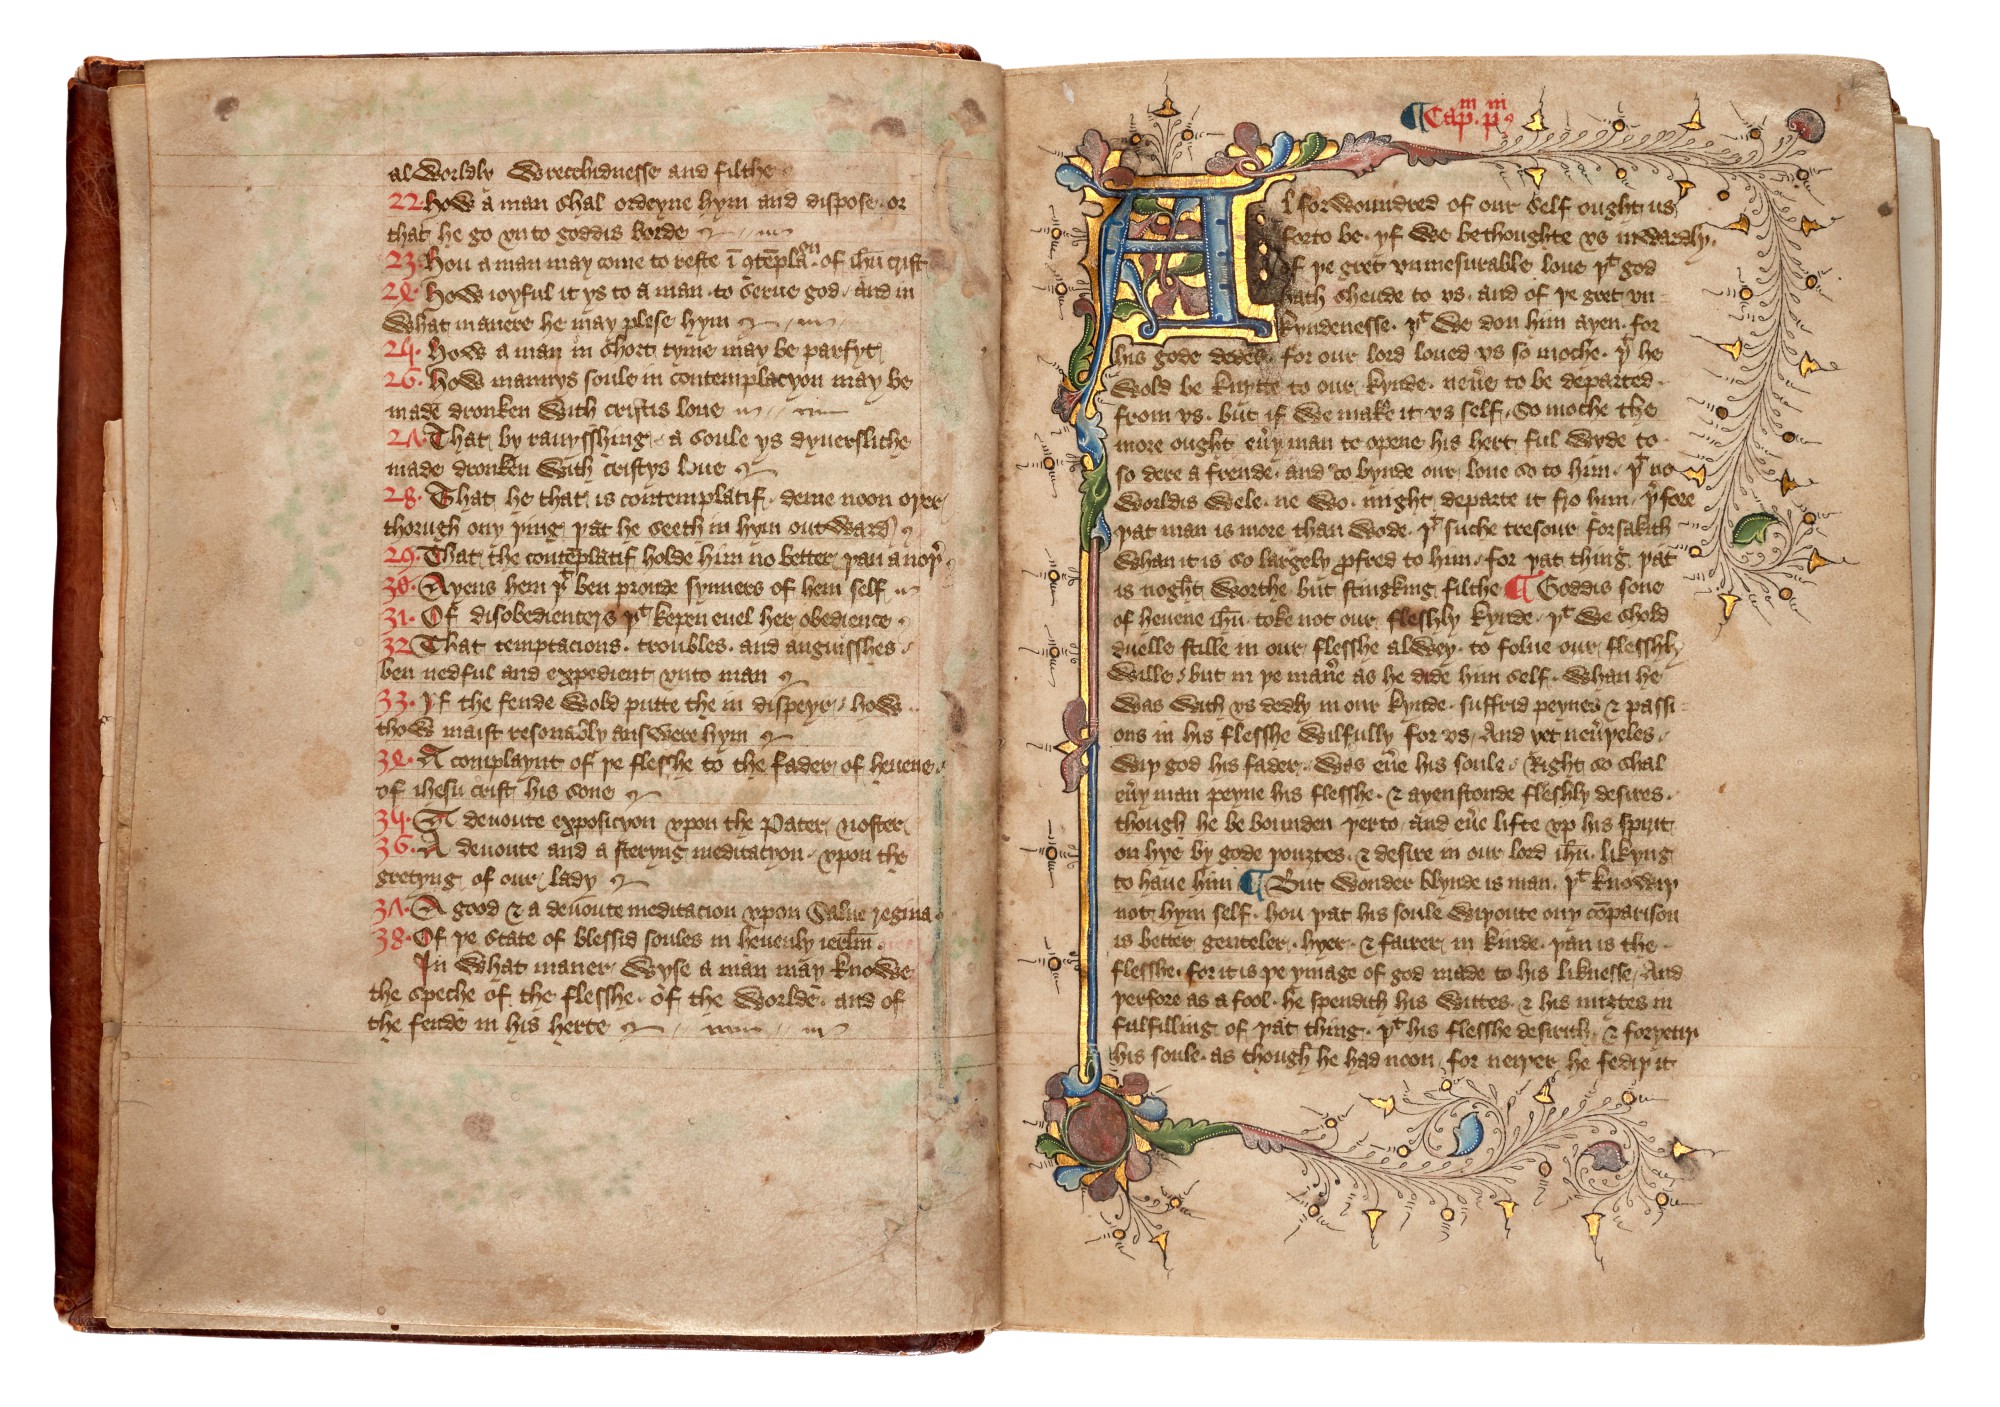 al worldly wrecchidnesse and filthe
22. How a man shal ordeyne hym and dispose. or
that he go vnto goddis borde
23. Hou a man may come to reste ī ꝯtēplaon. of ihū crist
2ꝝ. How ioyful it ys to a man. to serue god. and in
what manere he may plese hym
24. How a man in short tyme may be parfyt
26. How mannys soule in contemplacyon may be
made dronken with cristis loue
2ʌ. That by rauysshing. a soule ys dyuerslithe
made dronken with cristys loue
28. That he that is contemplatif. deme noon oþer
thorugh ony þing þat he seeth in hym outward
29. That the contēplatif holde him no better þan a noþ
30. Ayens hem þͭ ben proude synners of hem self
31. Of disobedienters þͭ kepen euel her obedience
32. That temptacions. troubles. and anguisshes.
ben nedful and expedient vnto man
33. Yf the fende wold putte the in dispeyr. how
thow maist resonably answere hym
3ꝝ. A complaynt of þe flesshe to the fader of heuene.
of ihesu crist his sone
34. A deuoute exposicyon vpon the Pater noster
36. A deuoute and a steryng meditacyon. vpon the
gretyng of our lady
3ʌ. A good ⁊ a deuoute meditacion vpon Salue regina
38. Of þe state of blessid soules in heuenly ierlm̄.
In what maner wyse a man may knowe
the speche of the flesshe. of the worlde. and of
the fende in his herte
¶ Capͫ. pͫ
Al forwoundred of our self ought us
forto be. yf we bethoughte vs inwardly.
of þe gret vnmesurable loue þͭ god
hath shende to vs. and of þe gret vn
kyndenesse. þͭ we don him ayen. for
his gode dedes. for our lord loued vs so moche. þͭ he
wold be knytte to our kynde. neu̾e to be departed.
from vs. but if we make it vs self. So moche the
more ought eu̾y man to opene his hert ful wyde to
so dere a frende. and to bynde our loue so to him. þͭ no
worldis wele. ne wo. might departe it fro him. þ̾fore
þat man is more than wode. þͭ suche tresour forsakith
whan it is so largely ꝓfred to him. for þat thing þat
is noght worthe. but stingking filthe ¶ Goddis sone
of heuene ihū. toke not our fleshly kynde. þͭ we shold
duelle stille in our flesshe alwey. to folue our flesshly
wille. but in þe man̾e as he dide him self. whan he
was with vs dedly in our kynde. suffrid peynes ⁊ passi
ons in his flesshe wilfully for vs. And yet neu̾þeles.
wiþ god his fader. was eu̾e his soule. Right so shal
eu̾y man peyne his flesshe. ⁊ ayenstonde fleshly desires.
though he be bounden þerto. and eu̾e lifte vp his spirit
on hye by gode þouȝtes. ⁊ desire in our lord ihū. likyng
to haue him ¶ But wonder blynde is man. þͭ knowiþ
not hym self. hou þat his soule wiþoute ony cōparison
is better. genteler. hyer. ⁊ fairer in kinde. þan is the
flesshe. for it is þe ymage of god made to his liknesse. And
þerfore as a fool. he spendith his wittes. ⁊ his miȝtes in
fulfilling of þat thing. þͭ his flesshe desirith. ⁊ forȝetiþ
his soule. as though he had noon. for neiþer he fediþ it